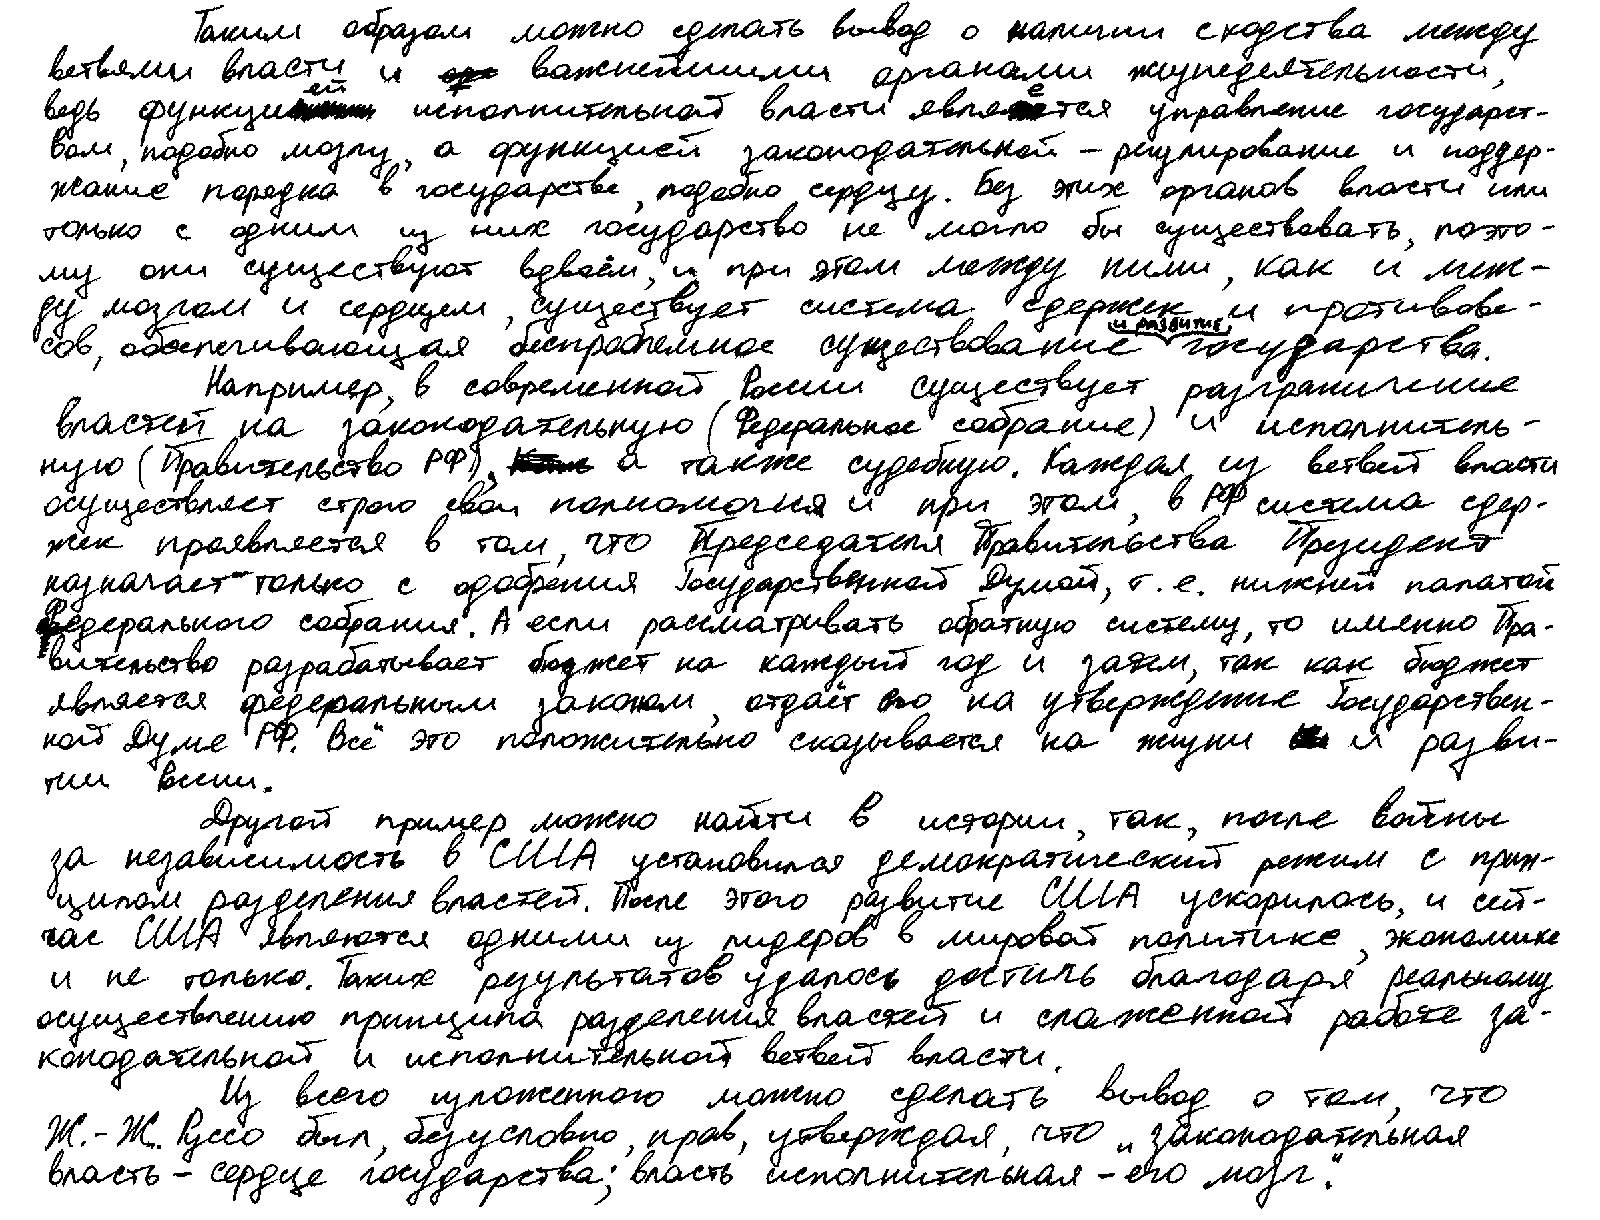 Таким образом можно сделать вывод о наличии сходства между
ветвями власти и важнейшими органами жизнедеятельности,
ведь функцией исполнительной власти является управление государст-
вом, подобно мозгу, а функцией законодательной – регулирование и поддер-
жание порядка в государстве, подобно сердцу. Без этих органов власти или
только с одним из них государство не могло бы существовать, поэто-
му они существуют вдвоём, и при этом между ними, как и меж-
ду мозгом и сердцем, существует система сдержек и противове-
сов, обеспечивающая беспроблемное существование и развитие государства.
Например, в современной России существует разграничение
властей на законодательную (Федеральное собрание) и исполнитель-
ную (Правительство РФ), а также судебную. Каждая из ветвей власти
осуществляет строго свои полномочия и при этом, в РФ система сдер-
жек проявляется в том, что Председателя Правительства Президент
назначает только с одобрения Государственной Думой, т.е. нижней палатой
Федерального собрания. А если рассматривать обратную систему, то именно Пра-
вительство разрабатывает бюджет на каждый год и затем, так как бюджет
является федеральным законом, отдаёт его на утверждение Государствен-
ной Думе РФ. Всё это положительно сказывается на жизни и разви-
тии
Другой пример можно найти в истории, так, после войны
за независимость в США установился демократический режим с прин-
ципом разделения властей. После этого развитие США ускорилось, и сей-
час США являются одними из лидеров в мировой политике, экономике
и не только. Таких результатов удалось достичь благодаря реальному
осуществлению принципа разделения властей и слаженной работе за-
конодательной и исполнительной ветвей власти.
Из всего изложенного можно сделать вывод о том, что
Ж.-Ж. Руссо был, безусловно, прав, утверждая, что „законодательная
власть – сердце государства; власть исполнительная – его мозг“.